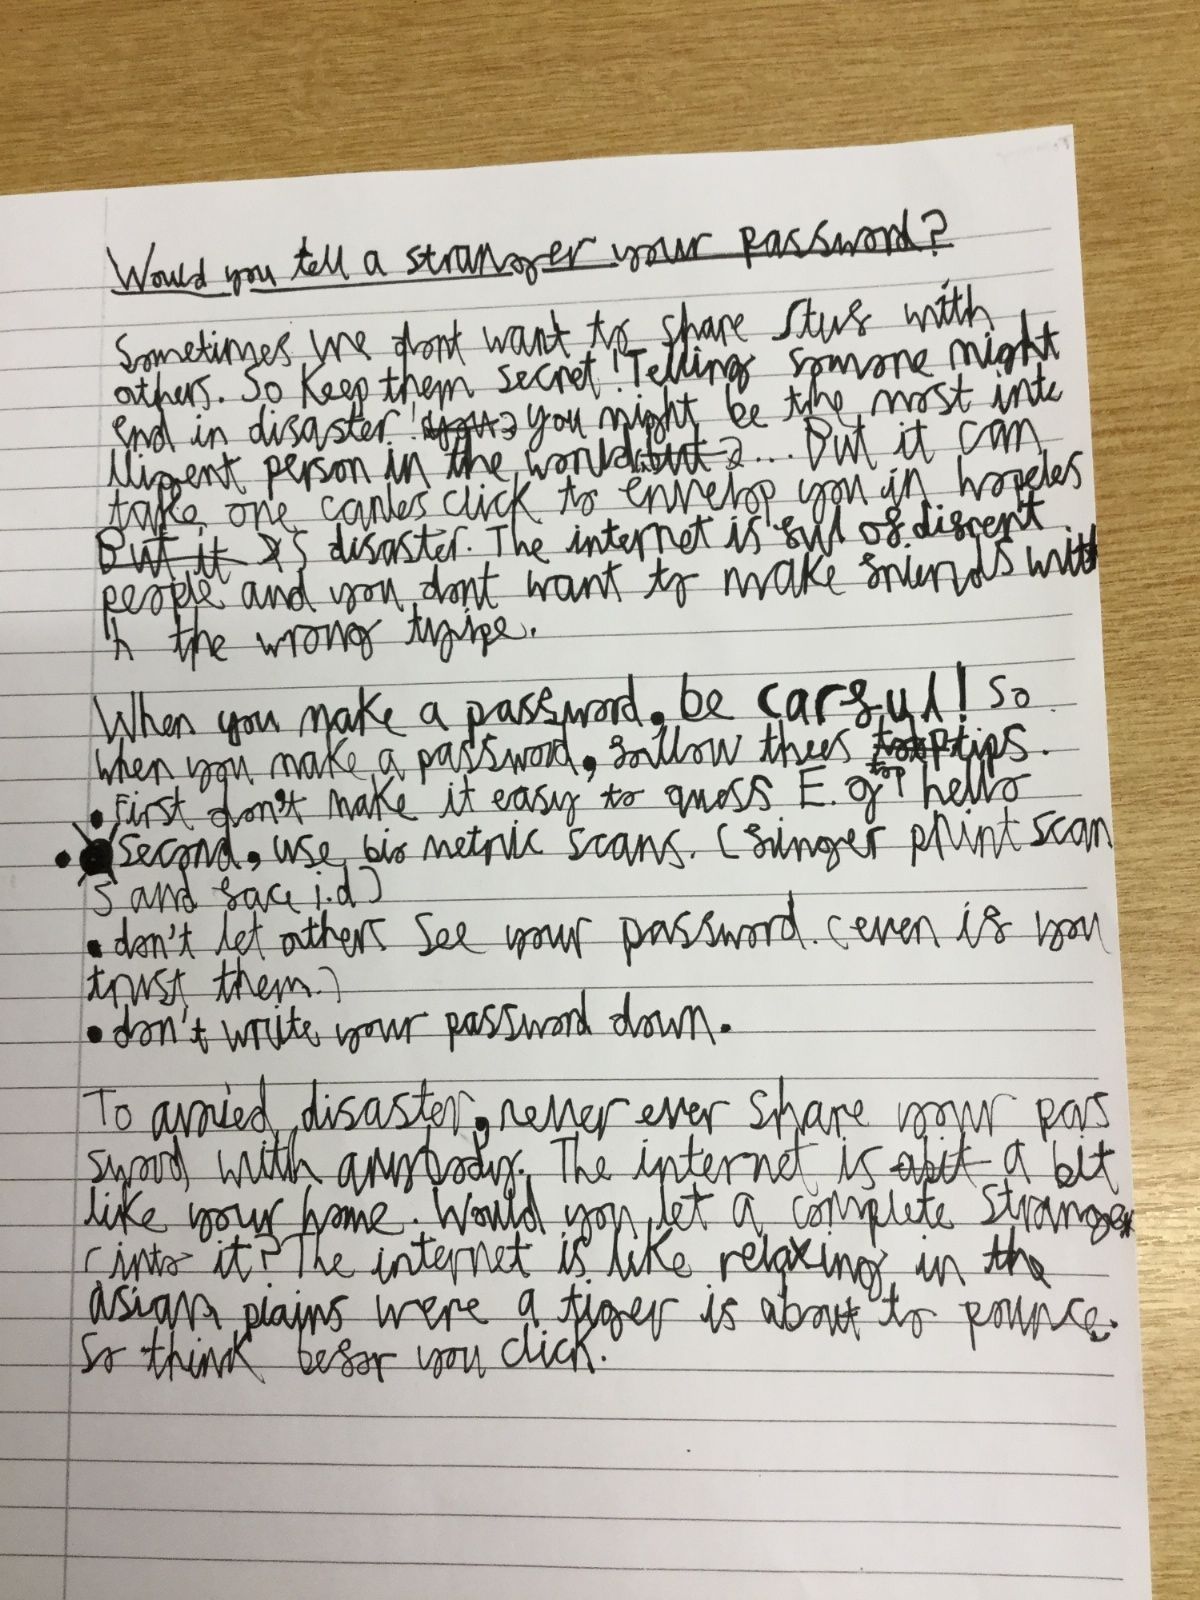 Would you tell a stranger your password?
Sometimes we dont want to share stuf with
others. So keep them secret! Telling somone might
end in disaster! you might be the most inte
lligent person in the world... But it can
take one carles click to envelop you in hopeles
But it s disaster. The internet is ful of difrent
people and you dont want to make friends wit
h the wrong tyipe.
When you make a password, be carful! So
when you make a password, follow thees top tips.
• First don't make it easy to guess E.g hello
• Second, use bio metric scans. (finger print scan
s and face i.d)
• don't let others see your password. (even if you
trust them.)
• don't write your password down.
To avoied disaster, never ever share your pas
sword with anybody. The internet is abit a bit
like your home. Would you let a complete stranger
into it? The internet is like relaxing in the
asian plains were a tiger is about to pounce.
So think befor you click.